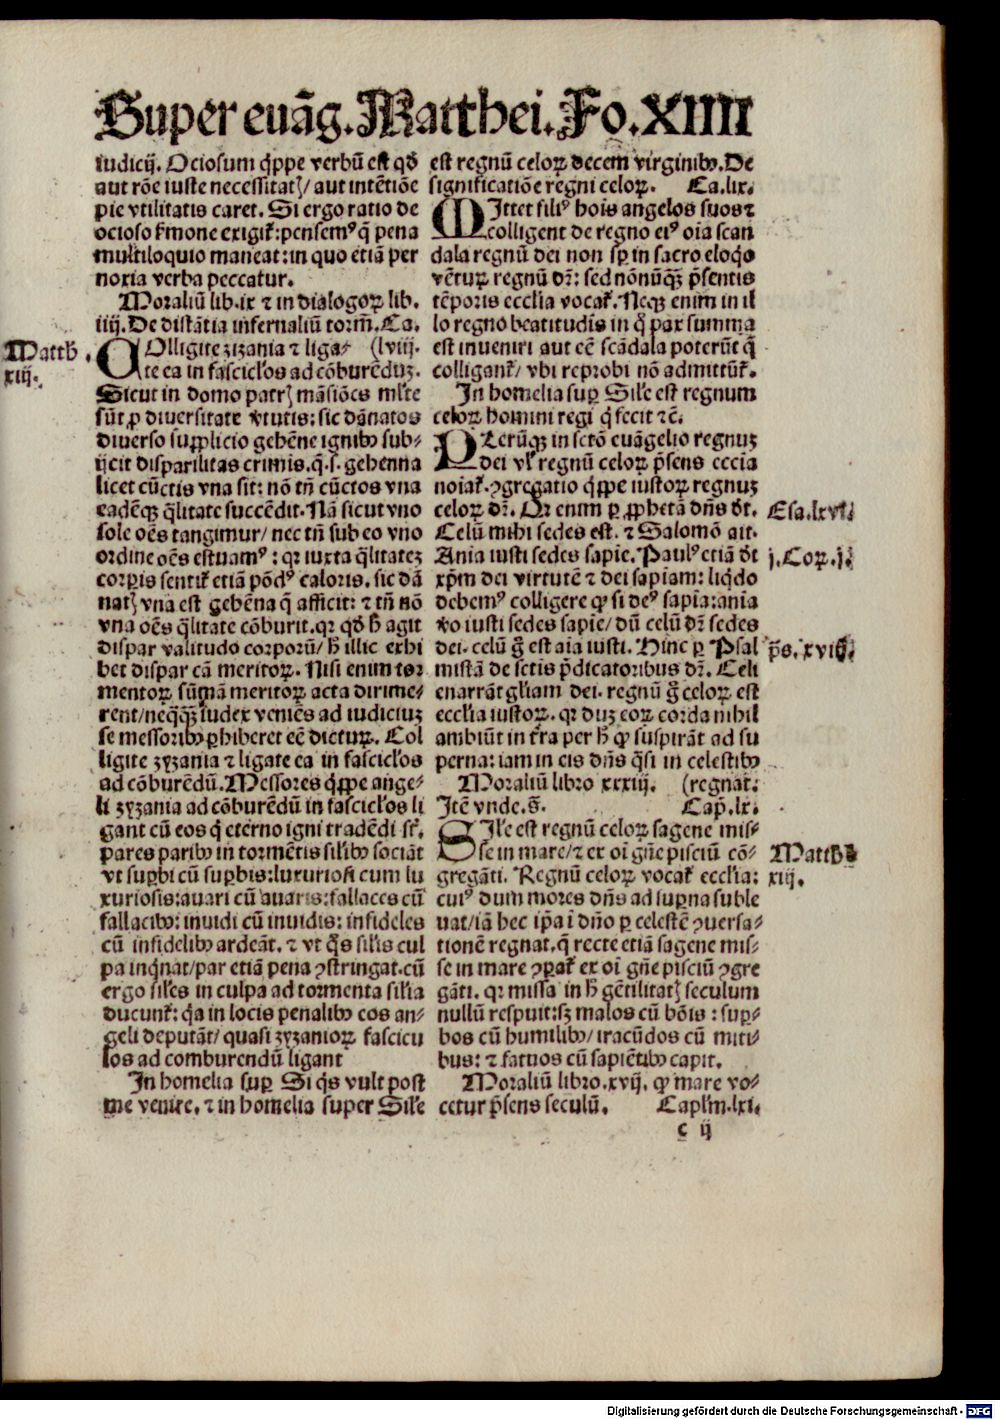 Super euāg. Matthei. Fo. XIIII
iudicij. Ociosum q̄ppe verbū est qđ
aut rōe iuste necessitatꝭ/ aut intētiōe
pie vtilitatis caret. Si ergo ratio de
ocioso ẜmone exigit᷑: pensemꝰ q̄ pena
multiloquio maneat: in quo etiā per
noxia verba peccatur.
Moraliū lib. ix ⁊ in dialogoꝝ lib.
iiij. De distātia infernaliū torm̄. Ca.
COlligite zizania ⁊ liga⸗ (lviij.
te ea in fascicl'os ad cōburēduꝫ.
Sicut in domo patrꝭ māsiōes ml'te
sūt ꝓ diuersitate v̓tutis: sic dānatos
diuerso supplicio gehēne ignibꝰ sub⸗
ijcit disparilitas crimīs. q̄. s. gehenna
licet cūctis vna sit: nō tn̄ cūctos vna
eadēqꝫ q̄litate succēdit. Nā sicut vno
sole oēs tangimur/ nec tn̄ sub eo vno
ordine oēs estuamꝰ: qꝛ iuxta q̄litateꝫ
corꝑis sentit᷑ etiā pōdꝰ caloris. sic dā
natꝭ vna est gehēna q̄ afficit: ⁊ tn̄ nō
vna oēs q̄litate cōburit. qꝛ qđ h̄ agit
dispar valitudo corporū/ h̄ illic exhi
bet dispar cā meritoꝝ. Nisi enim tor
mentoꝝ sūmā meritoꝝ acta dirime⸗
rent/ neq̄qꝫ iudex veniēs ad iudiciuꝫ
se messoribꝰ ꝑhiberet eē dicturꝝ. Col
ligite zyzania ⁊ ligate ea in fascicl'os
ad cōburēdū. Messores q̄ppe ange⸗
li zyzania ad cōburēdū in fascicl'os li
gant cū eos q̄ eterno igni tradēdi st̄.
pares paribꝰ in tormētis sil'ibꝰ sociāt
vt suꝑbi cū suꝑbis: luxuriosi cum lu
xuriosis: auari cū auaris: fallaces cū
fallacibꝰ: inuidi cū inuidis: infideles
cū infidelibꝰ ardeāt. ⁊ vt q̄s sil'is cul
pa inq̄nat/ par etiā pena ꝯstringat. cū
ergo sil'es in culpa ad tormenta sil'ia
ducunt᷑: q̄a in locis penalibꝰ eos an⸗
geli deputāt/ quasi zyzanioꝝ fascicu
los ad comburendū ligant
In homelia suꝑ Si q̄s vult post
me venire. ⁊ in homelia super Sil'e
est regnū celoꝝ decem virginibꝰ. De
significatiōe regni celoꝝ. Ca. lix.
MIttet filiꝰ hoīs angelos suos ⁊
colligent de regno eiꝰ oīa scan
dala regnū dei non sꝑ in sacro eloq̄o
vētuꝝ regnū dr̄: sed nōnūqꝫ p̄sentis
tēporis ecclīa vocat᷑. Neqꝫ enim in il
lo regno beatitudis in q̄ pax summa
est inueniri aut eē scādala poterūt q̄
colligant᷑/ vbi reprobi nō admittūt᷑.
In homelia suꝑ Sil'e est regnum
celoꝝ homini regi q̄ fecit ⁊c̄.
PLerūqꝫ in sctō euāgelio regnuꝫ
dei vl' regnū celoꝝ p̄sens eccīa
noīat᷑. ꝯgregatio q̄ppe iustoꝝ regnuꝫ
celoꝝ dr̄. Qꝛ enim ꝑ ꝓphetā dn̄s dt̄.
Celū mihi sedes est. ⁊ Salomō ait.
Anīa iusti sedes sapīe. Paulꝰ etiā dt̄
xp̄m dei virtutē ⁊ dei sapīam: liq̄do
debemꝰ colligere ꝙ si deꝰ sapīa: anīa
v̓o iusti sedes sapīe/ dū celū dr̄ sedes
dei. celū g̊ est aīa iusti. Hinc ꝑ Psal
mistā de sctīs p̄dicatoribus dr̄. Celi
enarrāt gl̄iam dei. regnū g̊ celoꝝ est
ecclīa iustoꝝ. qꝛ duꝫ eoꝝ corda nihil
ambiūt in t̄ra per h̄ ꝙ suspirāt ad su
perna: iam in eis dn̄s q̄si in celestibꝰ
Moraliū libro xxxiij. (regnat:
Itē vnde. s̄. Cap̄. lx.
SIl'e est regnū celoꝝ sagene mis⸗
se in mare/ ⁊ ex oī gn̄e pisciū cō⸗
gregāti. Regnū celoꝝ vocat᷑ ecclīa:
cuiꝰ dum mores dn̄s ad suꝑna suble
uat/ iā hec ip̄a ī dn̄o ꝑ celestē ꝯuersa⸗
tionē regnat. q̄ recte etiā sagene mis⸗
se in mare ꝯꝑat᷑ ex oī gn̄e pisciū ꝯgre
gāti. qꝛ missa in h̄ gētilitatꝭ seculum
nullū respuit: sꝫ malos cū bōis: suꝑ⸗
bos cū humilibꝰ/ iracūdos cū miti⸗
bus: ⁊ fatuos cū sapiētibꝰ capit.
Moraliū libro. xvij. ꝙ mare vo⸗
cetur p̄sens seculū. Capl'm. lxi.
c ij
Matth.
xiij.
Esa. lxvi.
j. Coꝝ. j.
p̄s. xviij.
Matth
xiij.
Digitalisierung gefördert durch die Deutsche Forschungsgemeinschaft - DFG